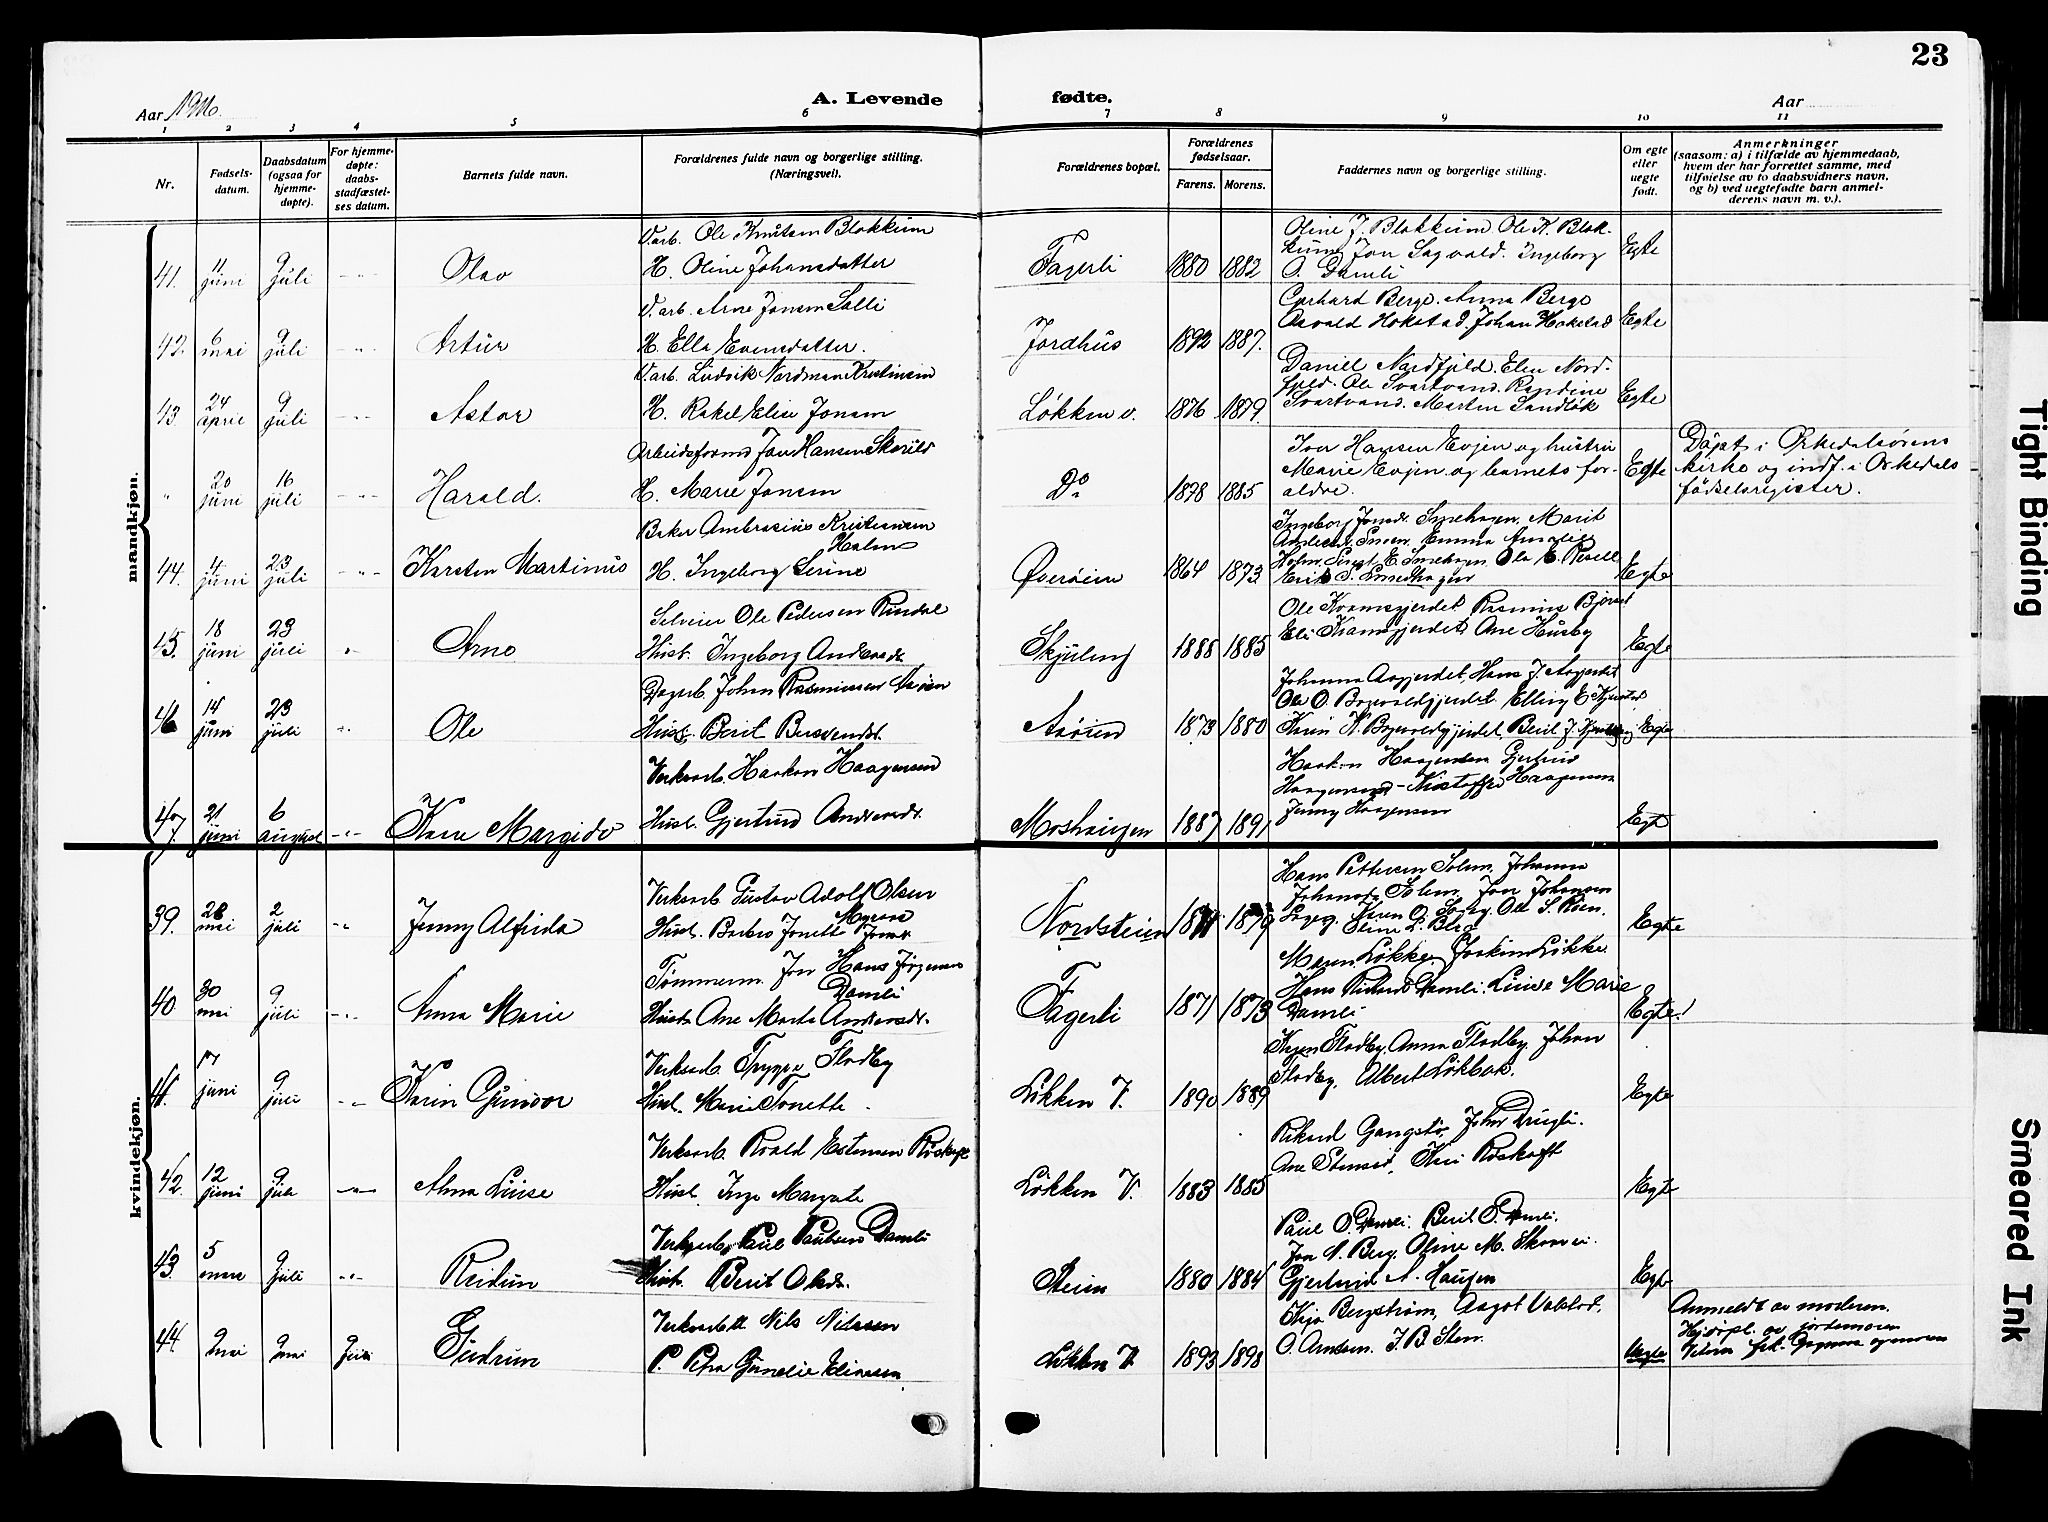 23
Aar 1916.
A. Levende fødte.
Aar
1 2 3 4 5 6 7 8 9 10 11
Nr.
Fødsels-
datum.
Daabsdatum
(ogsaa for
hjemme-
døpte).
For hjemme-
døpte:
daabs-
stadfæstel-
ses datum.
Barnets fulde navn.
Forældrenes fulde navn og borgerlige stilling.
(Næringsvei).
Forældrenes bopæl.
Forældrenes
fødselsaar.
Farens. Morens.
Faddernes navn og borgerlige stilling.
Om egte
eller
uegte
født.
Anmerkninger
(saasom: a) i tilfælde av hjemmedaab,
hvem der har forrettet samme, med
tilføielse av to daabsvidners navn,
og b) ved uegtefødte barn anmel-
derens navn m. v.).
mandkjøn.
41. 11 juni 9 juli Olav
V.arb. Ole Knutsen Blokkum
H. Oline Johansdatter
Fagerli 1880 1882
Oline J. Blokkum. Ole K. Blok-
kum Jon Sagvold. Ingeborg
O. Damli
Egte
42. 6 mai 9 juli Artur
V.arb. Arne Jonsen Solli
H. Ella Evensdatter.
Jordhus 1892 1887.
Gerhard Berge. Anna Berge
Osvald Hokstad. Johan Hokstad
Egte
43. 24 april 9 juli Astor
V.arb. Ludvik Nordman Kristensen
H. Rakel Elise Jonsen
Løkken v. 1876 1879.
Daniel Nordfjeld. Elen Nord-
fjeld. Ole Svartvand. Randine
Svartvand. Marten Sandløk
Egte
" 20 juni 16 juli Harald.
Arbeidsformd Jon Hansen Skorild
H. Marie Jonsen
Do 1878 1885
Jon Hansen Evjen og hustru
Marie Evjen og barnets for-
ældre.
Egte
Døpt i Orkedalsørens
kirke og indf. i Orkedals
fødselsregister.
44. 4 juni 23 juli Karsten Martinus
Baker Ambrosius Kristiansen
Holm
H. Ingeborg Serine
Øverøien 1864 1873
Ingeborg Jonsdr. Smehagen. Marit
Emma Amalie
Holm. E. Smehagen. Ole E.
Erik S. Smedhagen
Egte
45. 18 juni 23 juli Arne
Selveier Ole Pedersen Rindal
Hust. Ingeborg Andersdr.
Skjuling 1888 1885
Ole Kvamsgjerdet, Rasmus
Eli Kvamsgjerdet, Ane Husby
Egte
46 14 juni 23 juli Ole
Dagarb. Johan Rasmussen Asøien
Hust. Berit Bersvendsdr.
Asøien 1873 1880
Johanna Aagjerdet, Hans J. Aagjerdet
Ole O. Bogevoldgjerdet. Elling E.
Karin K. Bogevoldgjerdet, Berit J.
Egte
47. 21 juni 6 august Kåre Margido
Verksarb. Haakon Haagensen
Hust. Gjertrud Andersdr.
Moshaugen 1887 1891
Haakon Haagensen Gjertrud
Haagensen - Kristoffer Haagensen
Jenny Haagensen
Egte
kvindekjøn.
39. 28 mai 2 juli Jenny Alfrida
Verksarb. Gustav Adolf Olsen
Hust. Barbro Jonette
Nordsteien 1871 1879
Hans Pettersen Solem, Johanna
Johansdr. Solem. Jon Johansen
Karen O. Ole S. Røen.
Egte
40. 30 mai 9 juli Anna Marie
Tømmerm. Jon Hans Jørgensen
Damli
Hust. Ane Marta Andersdr.
Fagerli 1871 1873
Maren Løkke, Joakim Løkke
Hans Rikard Damli. Luise Marie
Damli
Egte!
41. 17 juni 9 juli Karin Gunvor
Verksarb. Trygve Flodby
Hust. Marie Tonette
Løkken V. 1890 1889
Karen Flodby, Anna Flodby, Johan
Flodby, Albert Løkbak.
Egte
42. 12 juni 9 juli Alma Luise
Verksarb. Roald Estensen Røskaft
Hust. Inga Margrete
Løkken V. 1883 1885
Rikard Gangstø, Johan Drugli.
Ane Stensø, Kari Røskaft
Egte
43. 5 mars 9 juli Reidun
Verksarb. Paul Paulsen Damli
Hust. Berit Olsdr.
Steien 1880 1884
Paul O. Damli. Berit P. Damli.
Jon N. Berg. Oline M.
Gjertrud A. Haugen
Egte
44. 9 mai 9 mai 9 juli Gudrun
Verksarbeit. Nils Nilssen
P. Petra Gunelie Eliassen
Løkken V. 1893 1898
Bergström, Aagot
O. Arntsen. J. B. Sten.
Uegte
Anmeldt av moderen.
Hj.døpt. av jordemoren